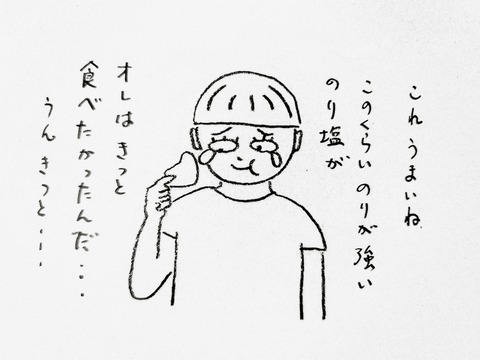 これ うまいね
このくらい のりが 強い
のり塩が
オレは きっと
食べたかったんだ・・・
うん きっと・・・